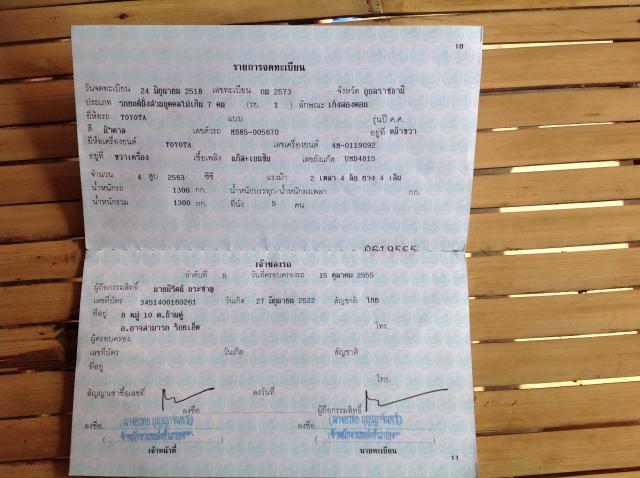 10
รายการจดทะเบียน
วันจดทะเบียน 24 มิถุนายน 2518 เลขทะเบียน กม 2573 จังหวัด อุบลราชธานี
ประเภท รถยนต์นั่งส่วนบุคคลไม่เกิน 7 คน (รย. 1 ) ลักษณะ เก๋งสองตอน
ยี่ห้อรถ TOYOTA แบบ รุ่นปี ค.ศ.
สี น้ำตาล เลขตัวรถ MS85-005670 อยู่ที่ หน้าขวา
ยี่ห้อเครื่องยนต์ TOYOTA เลขเครื่องยนต์ 4M-0119092
อยู่ที่ ขวาเครื่อง เชื้อเพลิง แก๊ส+เบนซิน เลขถังแก๊ส UMD4815
จำนวน 4 สูบ 2563 ซีซี แรงม้า 2 เพลา 4 ล้อ ยาง 4 เส้น
น้ำหนักรถ 1300 กก. น้ำหนักบรรทุก/น้ำหนักลงเพลา กก.
น้ำหนักรวม 1300 กก. ที่นั่ง 5 คน
0619565
เจ้าของรถ
ลำดับที่ 5 วันที่ครอบครองรถ 15 ตุลาคม 2555
ผู้ถือกรรมสิทธิ์
เลขที่บัตร 3451400160261 วันเกิด 27 มิถุนายน 2522 สัญชาติ ไทย
ที่อยู่ 8 หมู่ 10 ต.บ้านดู่
อ.อาจสามารถ ร้อยเอ็ด โทร.
ผู้ครอบครอง
เลขที่บัตร วันเกิด สัญชาติ
ที่อยู่
โทร.
สัญญาเช่าซื้อเลขที่ ลงวันที่
ลงชื่อ ผู้ถือกรรมสิทธิ์
ลงชื่อ ลงชื่อ
เจ้าหน้าที่ นายทะเบียน
11